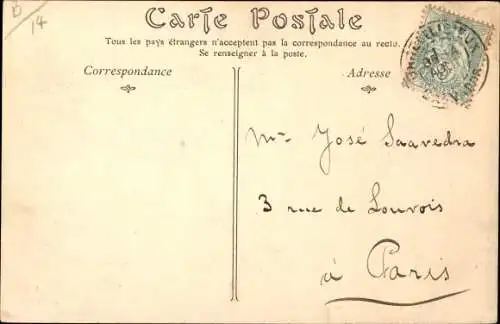 B
14
Carte Postale
Tous les pays étrangers n'acceptent pas la correspondance au recto.
Se renseigner à la poste.
Correspondance
Adresse
Mr José Saavedra
3 rue de Louvois
à Paris